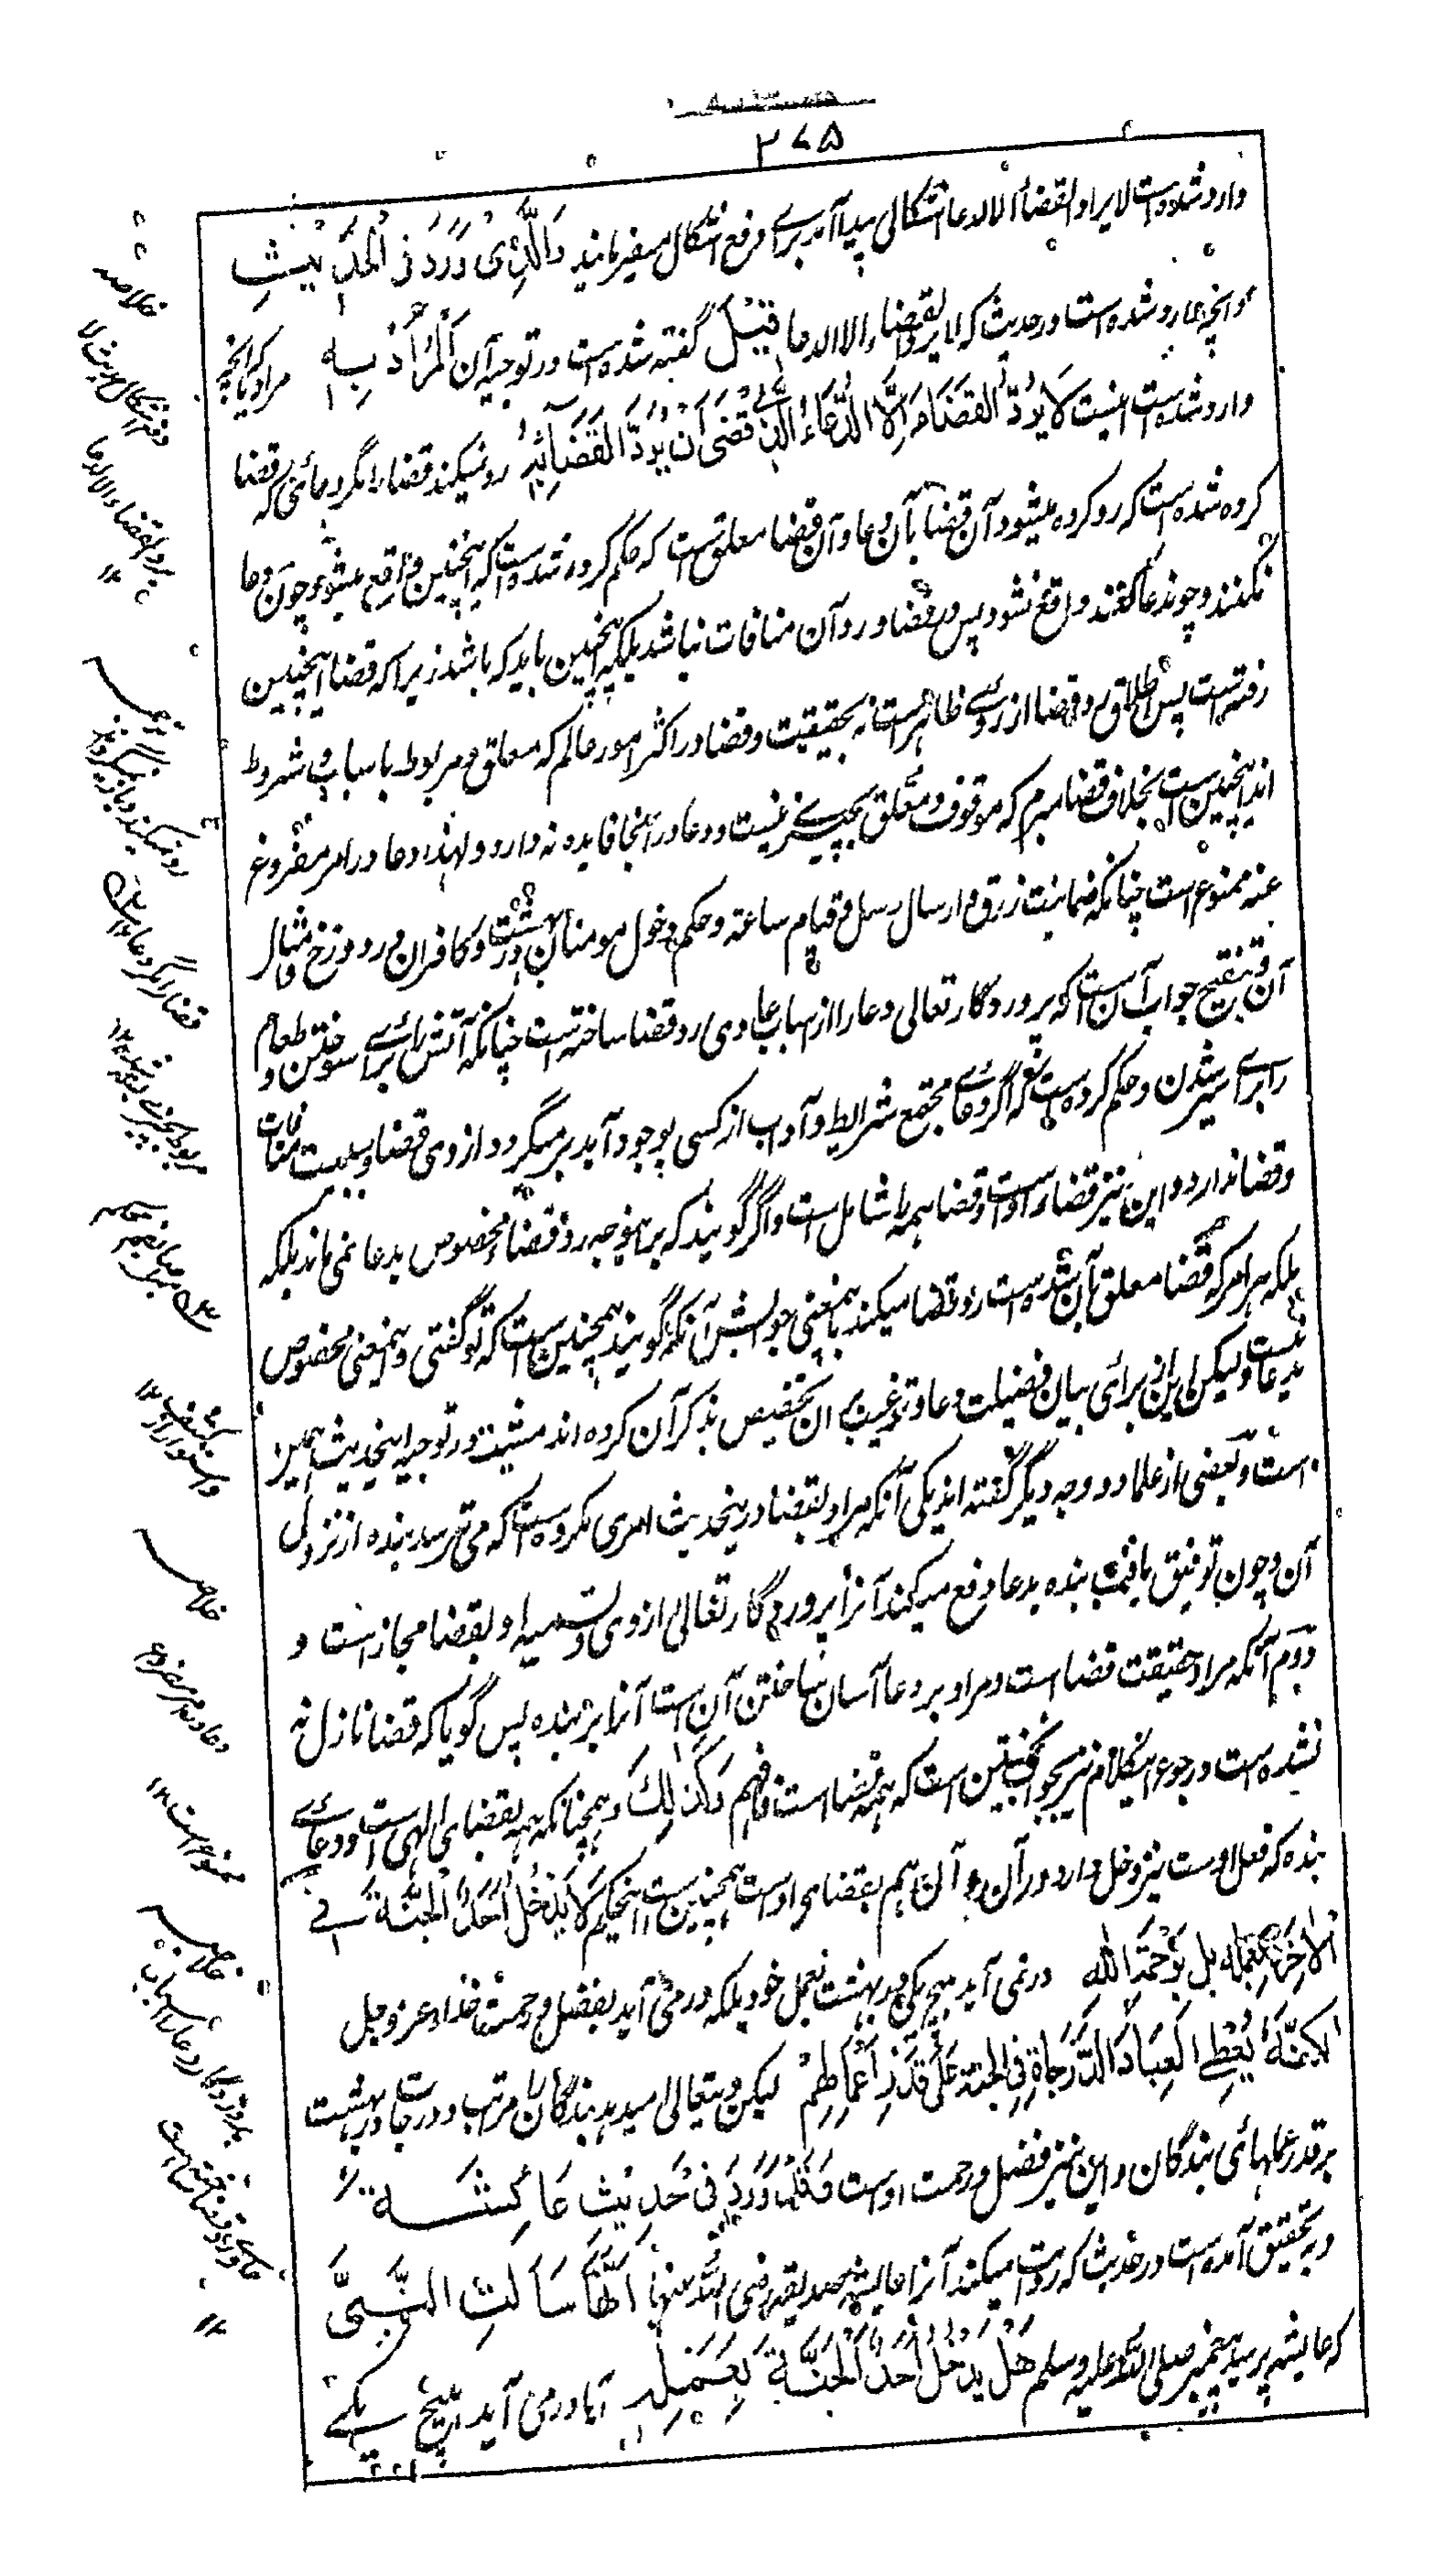 ۳۷۵
وارد شده است لا یرد القضأ الا الدعا اشکالی پیدا آمد برای دفع اشکال میفرمایند وَالَّذِیْ وَرَدَ فِی الْحَدِیْثِ
و آنچه وارد شده است در حدیث که لا یرد القضاء الا الدعا قِیْلَ گفته شده است در توجیه آن اَلْمُرَادُ بِهٖ مراد که بآنچه
وارد شده است اینست لَا یَرُدُّ الْقَضَاءَ اِلَّا الدُّعَاءُ الَّذِیْ قُضِیَ اَنْ یُرَدَّ الْقَضَاءُ بِهٖ رد نمیکند قضا را مگر دعائی که قضا
کرده شده است که رد کرده میشود آن قضا بآن دعا و آن قضا معلق است که حکم کرده شده است که اینچنین واقع میشود چون دعا
نکنند و چون دعا کنند واقع نشود پس در قضا و رد آن منافات نباشد بلکه اینچنین باید که باشد زیرا که قضا اینچنین
رفته است پس اطلاق رد قضا از روی ظاهر است نه بحقیقت و قضا در اکثر امور عالم که معلق و مربوط باسباب و شروط
اند اینچنین است بخلاف قضا مبرم که موقوف و معلق بچیزی نیست و دعا در اینجا فایده نه دارد و لهذا دعا در امر مفروغ
عنه ممنوع است چنانکه ضمانت رزق و ارسال رسل و قیام ساعة و حکم دخول مومنان در بهشت و کافران در دوزخ و مثال
آن و تنقیح جواب آنست که پروردگار تعالی دعا را از اسباب عادی رد قضا ساخته است چنانکه آتش را برای سوختن و طعام
را برای سیر شدن و حکم کرده است که اگر دعای مجتمع شرایط و آداب از کسی بوجود آید بر میگردد از وی قضا و سببیت منافات
و قضا ندارد و این نیز قضاء اوست و قضا همه را شامل است و اگر گویند که بر این وجه رد قضا مخصوص بدعا نمی ماند بلکه
بلکه هر امر که قضا معلق بآن شده است رد قضا میکند باینمعنی جوابش آنکه گویند همچنین است که تو گفتی و اینمعنی مخصوص
بدعا نیست ولیکن این از برای بیان فضیلت دعا و ترغیب بر آن تخصیص بذکر آن کرده اند مشیت در توجیه اینحدیث همین
است و بعضی از علما دو وجه دیگر گفته اند یکی آنکه مراد بقضا درینحدیث امری مکروه است که می ترسد بنده از نزول
آن و چون توفیق یافت بنده بدعا دفع میکند آنرا پروردگار تعالی از وی و تسمیه او بقضا مجاز است و
دوم آنکه مراد حقیقت قضا است و مراد برد دعا آسان ساختن آن است آنرا بر بنده پس گویا که قضا نازل نه
شده است و رجوع اینکلام نیز بجواب نخستین است که همه قضا است فافهم وَکَذٰلِکَ و همچنانکه همه بقضای الهی است و دعای
بنده که فعل اوست نیز دخل دارد در آن و آن هم بقضای اوست همچنین است اینحکم لَا یَدْخُلُ اَحَدُ الْجَنَّةَ فِی
الْاٰخِرَةِ بِعَمَلِهٖ بَلْ بِرَحْمَةِ اللّٰهِ در نمی آید هیچ یکی در بهشت بعمل خود بلکه در می آید بفضل و رحمت خدا عز و جل
لٰکِنَّهٗ یُعْطِی الْعِبَادَ الدَّرَجَاةَ فِی الْجَنَّةِ عَلٰی قَدْرِ اَعْمَالِهِمْ لیکن ویتعالی میدهد بندگان را مرتب و درجات در بهشت
بر قدر عملهای بندگان و این نیز فضل و رحمت اوست وَقَدْ وَرَدَ فِیْ حَدِیْثِ عَائِشَةَ رض
و بتحقیق آمده است در حدیث که روایت میکند آنرا عایشه صدیقه رضی الله عنها اَنَّهَا سَاَلَتِ النَّبِیَّ
که عایشه پرسید پیغمبر صلی الله علیه وسلم هَلْ یَدْخُلُ اَحَدُ الْجَنَّةَ بِعَمَلِهٖ آیا در می آید هیچ یکی
خلاصه
دفع اشکال حدیث لا
یرد القضاء الا الدعا
۱۲
رد نمیکند و باز نمیگرداند
قضا را مگر دعا
خلاصه
دعا در امر مفروغ
ممنوع است ۱۲
خلاصه
پروردگار دعا را از اسباب
عادی رد قضا ساخته است
۱۲